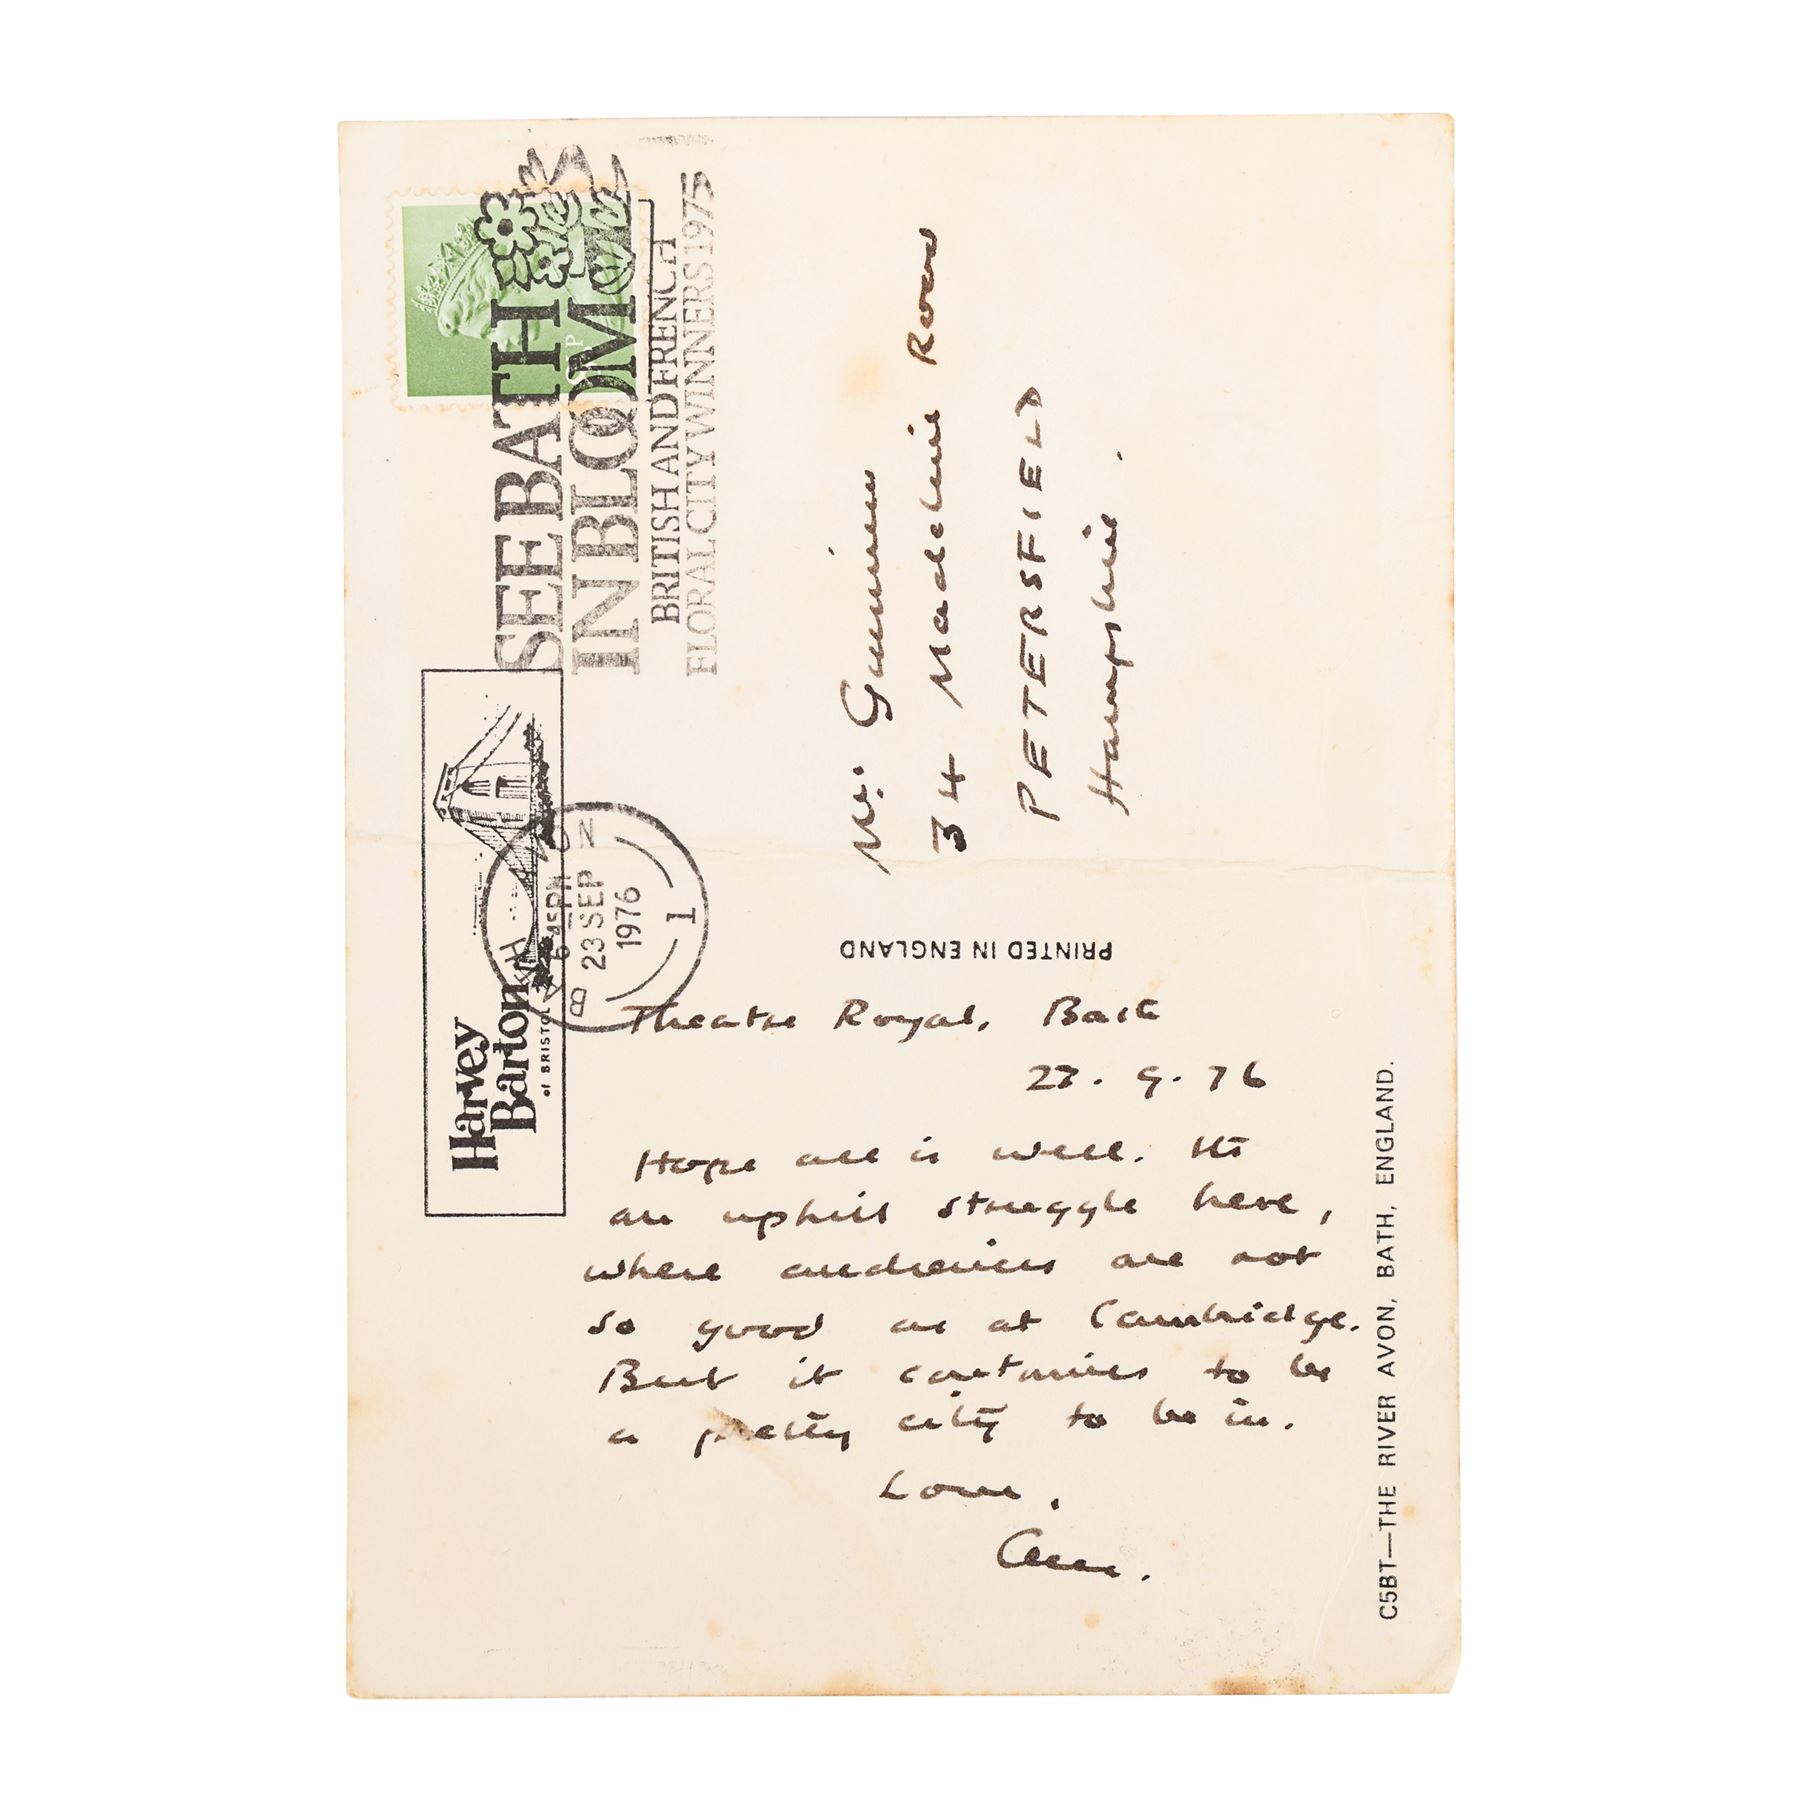 SEE BATH
IN BLOOM
BRITISH AND FRENCH
FLORAL CITY WINNERS 1975
Harvey
Barton
of BRISTOL
6 45PM
23 SEP
1976
1
34 Road
PETERSFIELD
Hampshire.
PRINTED IN ENGLAND
Theatre Royal, Bath
23.9.76
Hope all is well. Its
an uphill struggle here,
where audiences are not
so good as at Cambridge.
But it continues to be
a pretty city to be in.
Love,
C5BT—THE RIVER AVON, BATH, ENGLAND.